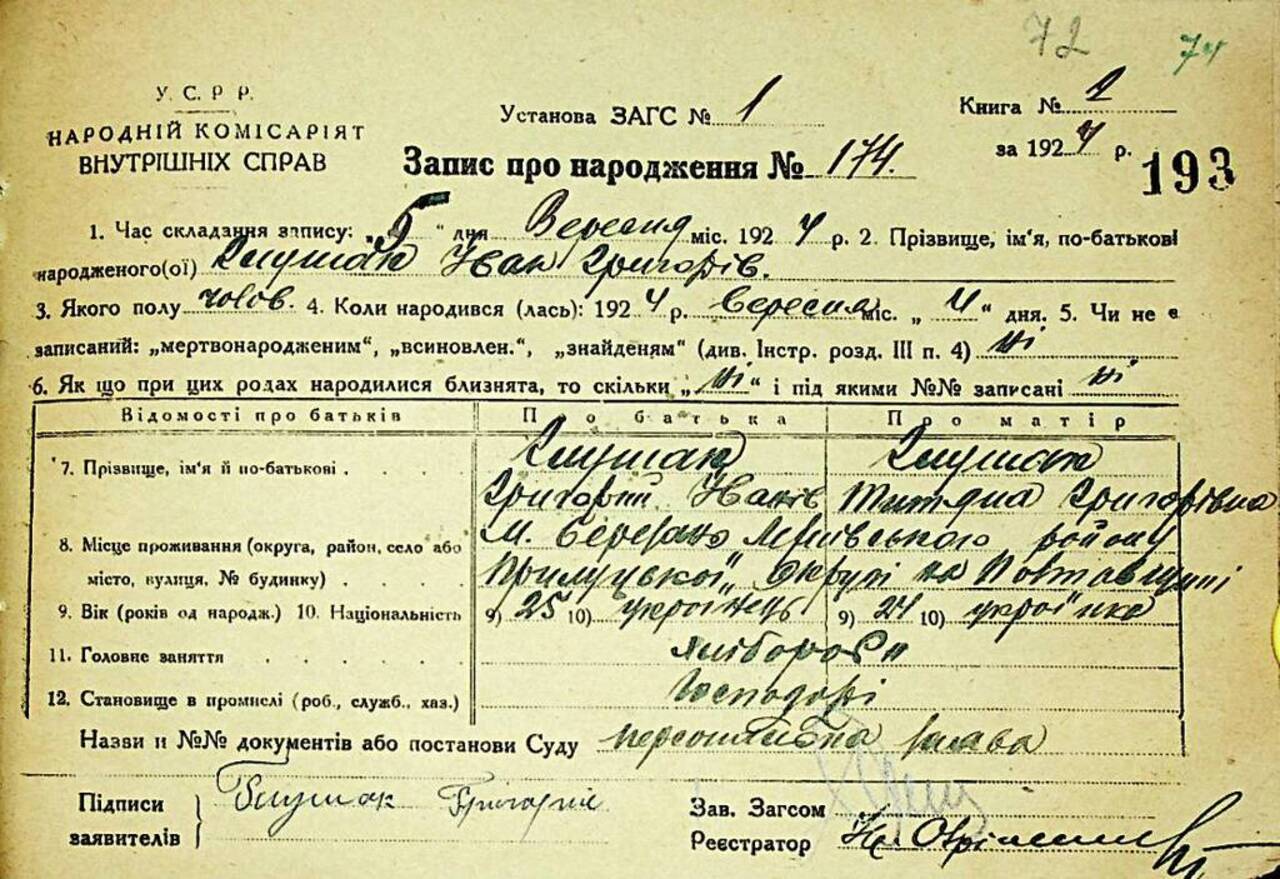 72 74
У. С. Р. Р.
НАРОДНІЙ КОМІСАРІЯТ
ВНУТРІШНІХ СПРАВ
Установа ЗАГС № 1
Книга № 2
за 1924 р.
193
Запис про народження № 174.
1. Час складання запису: „5" дня Вересня міс. 1924 р. 2. Прізвище, ім'я, по-батькові
народженого(ої) Глушак Иван Григорів.
3. Якого полу чолов. 4. Коли народився (лась): 1924 р. Вересня міс. „4" дня. 5. Чи не є
записаний: „мертвонародженим", „всиновлен.", „знайденям" (див. Інстр. розд. III п. 4) Ні
6. Як що при цих родах народилися близнята, то скільки „Ні" і під якими №№ записані Ні
Відомості про батьків Про батька Про матір
7. Прізвище, ім'я й по-батькові . . . Глушак Глушак
Григорій Иванів Титяна Григорівна
8. Місце проживання (округа, район, село або М. Березань району
місто, вулиця, № будинку) . . . . Прилуцької округи на Полтавщині
9. Вік (років од народж.) 10. Національність 9) 25 10) українець 9) 24 10) українка
11. Головне заняття . . . . . Хлібороби
12. Становище в промислі (роб., служб., хаз.) Господарі
Назви и №№ документів або постанови Суду персональна заява
Підписи
заявителів
Глушак Григорій
Зав. Загсом
Реєстратор